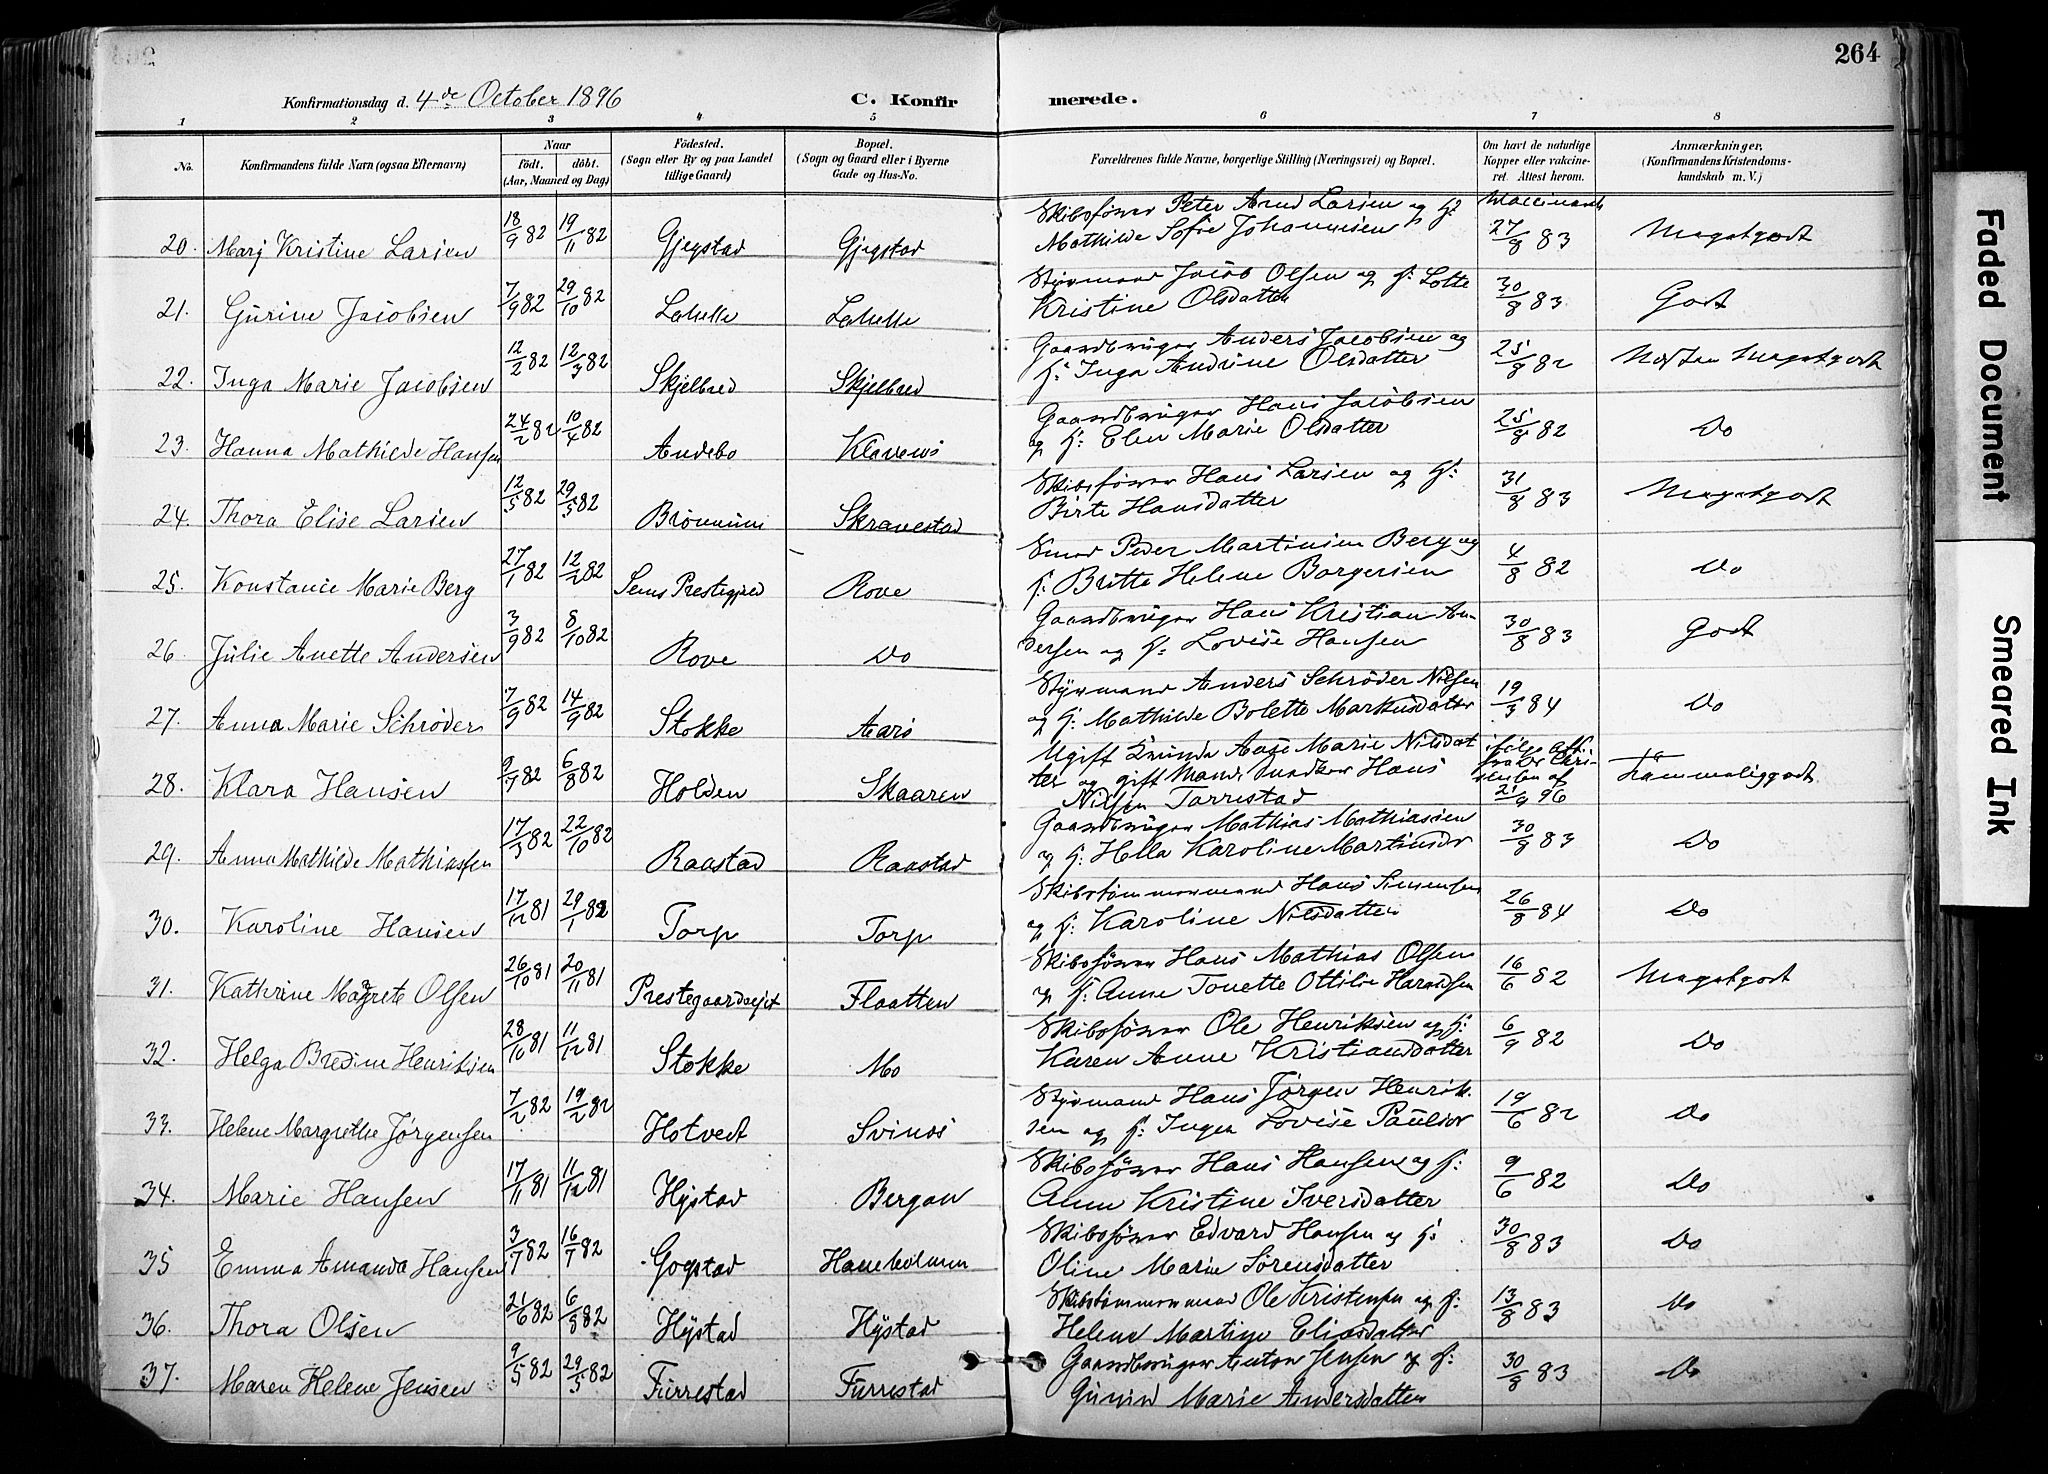 264
Konfirmationsdag d. 4de October 1896
C. Konfirmerede.
1 2 3 4 5 6 7 8
No.
Konfirmandens fulde Navn (ogsaa Efternavn)
Naar
født. døbt.
(Aar, Maaned og Dag)
Fødested.
(Sogn eller By og paa Landet
tillige Gaard)
Bopæl.
(Sogn og Gaard eller i Byerne
Gade og Hus-No.
Forældrenes fulde Navne, borgerlige Stilling (Næringsvei) og Bopæl.
Om havt de naturlige
Kopper eller vakcine-
ret. Attest herom.
Anmærkninger,
(Konfirmandens Kristendoms-
kundskab m. V.)
20. Marj Kristine Larsen 18/9 82 19/11 82 Gjegstad Gjegstad Skibsfører Peter Arnd Larsen og H:
Mathilde Sofie Johannesen 27/8 83 Megetgodt
21. Gurine Jacobsen 7/9 82 29/10 82 Lahelle Lahelle Styrmand Jacob Olsen og H: Lotte
Kristine Olsdatter 30/8 83 Godt
22. Inga Marie Jacobsen 12/2 82 12/3 82 Skjelbred Skjelbred Gaardbruger Anders Jacobsen og
H: Inga Andrine Olsdatter 25/8 82 Næsten Megetgodt
23. Hanna Mathilde Hansen 24/2 82 10/4 82 Andebo Klavenes Gaardbruger Hans Jacobsen
og H: Elen Marie Olsdatter 25/8 82 Do
24. Thora Elise Larsen 12/5 82 29/5 82 Brønnum Skravestad Skibsfører Hans Larsen og H:
Birte Hansdatter 31/8 83 Megetgodt
25. Konstance Marie Berg 27/1 82 12/2 82 Sems Prestegjeld Rove Smed Peder Martinsen Berg og
H: Britte Helene Borgersen 4/8 82 Do
26. Julie Anette Andersen 3/9 82 8/10 82 Rove Do Gaardbruger Hans Kristian An-
dersen og H: Lovise Hansen 30/8 83 Godt
27. Anna Marie Schrøder 7/9 82 14/9 82 Stokke Aarø Styrmand Anders Schrøder Nilsen
og H: Mathilde Bolette Markusdatter 19/3 84 Do
28. Klara Hansen 9/7 82 6/8 82 Holden Skaaren Ugift Kvinde Aase Marie Nilsdat
ter og gift Mand Snedker Hans
Nilsen Torrestad 21/9 96 Temmeliggodt
29. Anna Mathilde Mathiassen 17/3 82 22/10 82 Raastad Raastad Gaardbruger Mathias Mathiassen
og H: Hella Karoline Martinsdr 30/8 83 Do
30. Karoline Hansen 17/12 81 29/1 82 Torp Torp Skibstømmermand Hans Simensen
og H: Karoline Nilsdatter 26/8 84 Do
31. Kathrine Magrete Olsen 26/10 81 20/11 81 Prestegaardsejet Flaatten Skibsfører Hans Mathias Olsen
og H: Anne Tonette Ottilie Haraldsen 16/6 82 Megetgodt
32. Helga Bredine Henriksen 28/10 81 11/12 81 Stokke Mo Skibsfører Ole Henriksen og H:
Karen Anne Kristiansdatter 6/9 82 Do
33. Helene Margrethe Jørgensen 7/2 82 19/2 82 Hotvedt Svinøs Styrmand Hans Jørgen Henrik-
sen og H: Inger Lovise Paulsdr 19/6 82 Do
34. Marie Hansen 17/11 81 11/12 81 Hystad Bergan Skibsfører Hans Hansen og H:
Anne Kristine Iversdatter 9/6 82 Do
35 Emma Amanda Hansen 3/7 82 16/7 82 Gogstad Haneholmen Skibsfører Edvard Hansen og H:
Oline Marie Sørensdatter 30/8 83 Do
36. Thora Olsen 21/6 82 6/8 82 Hystad Hystad Skibstømmermand Ole Kristensen og H:
Helene Martine Eliasdatter 13/8 83 Do
37. Maren Helene Jensen 9/5 82 29/5 82 Furrestad Furrestad Gaardbruger Anton Jensen og H:
Gunild Marie Andersdatter 30/8 83 Do
Faded Document
Smeared Ink